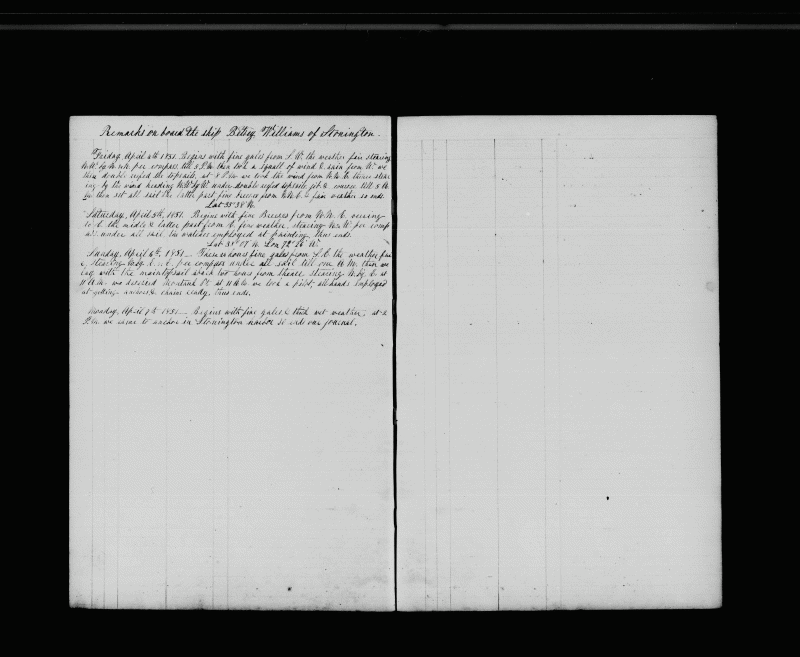 Remarks on board the ship Betsey Williams of Stonington.
Friday, April 4th 1851. Begins with fine gales from S.W. the weather fair steering
per compass till 5 P.M. then took a squall of wind & rain from W. we
then double reefed the topsails, at 8 P.M. we took the wind from N.N.E. thence steer
ing by the wind heading under double reefed topsails, jib & courses till 5 A.
M. then set all sail the latter part fine breeze from N.N.E. & fair weather so ends.
Lat 35° 38 N.
Saturday, April 5th, 1851. Begins with fine Breezes from N.N.E. veering
to E. the middle & latter part from E. fine weather, steering per comp
ass under all sail, the watches employed at painting, thus ends.
Lat 38° 07 N. Lon 72° 26 W.
Sunday, April 6th, 1851 — These 24 hours fine gales from S.E. the weather fair
steering per compass under all sail till one A.M. then we
lay with the maintopsail aback two hours from thence steering N. by E. at
11 A.M. we descried Montauk Pt. at 11 A.M. we took a pilot, all hands employed
at getting anchors & chains ready, thus ends.
Monday, April 7th 1851 — Begins with fine gales & thick wet weather, at 2
P.M. we came to anchor in Stonington harbor so ends our journal.